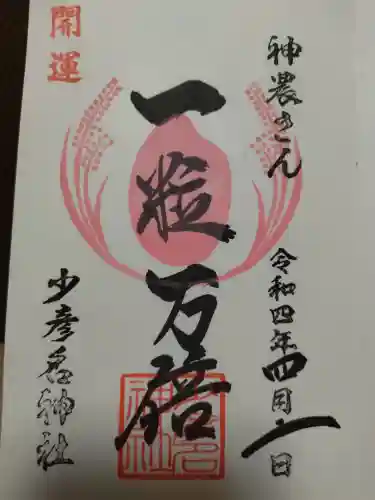 神農さん
令和四年四月一日
一粒万倍
開運
少彦名神社